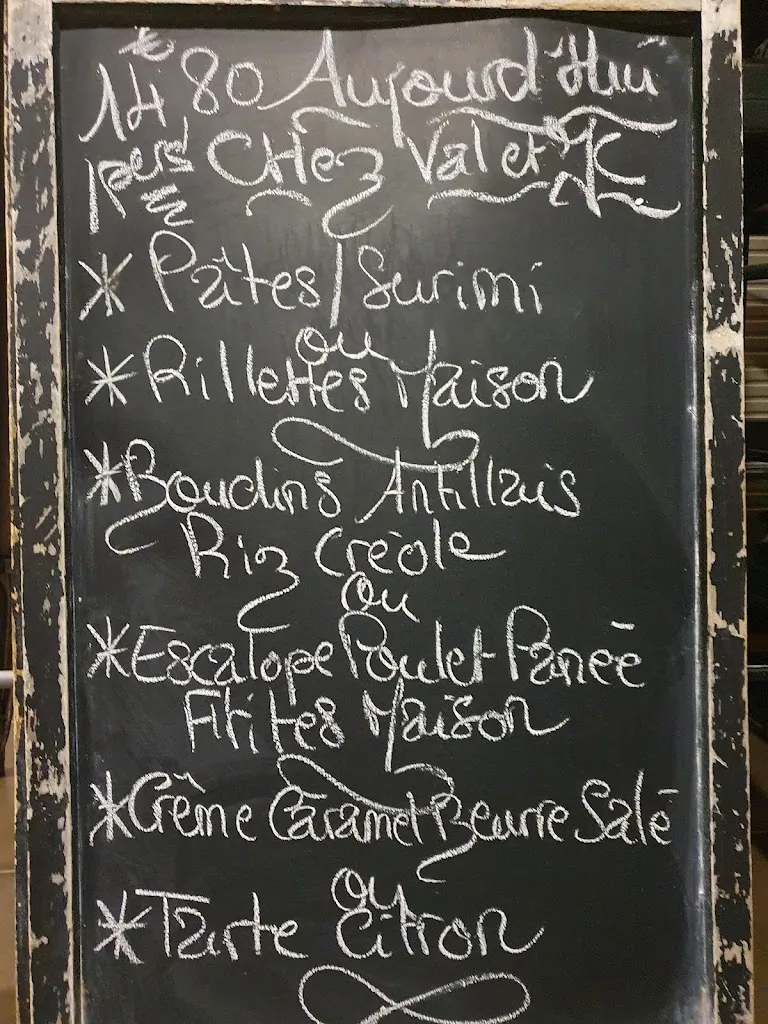 14€80 Aujourd'Hui
1pers Chez Val et JC
* Pâtes/Surimi
ou
* Rillettes Maison
* Boudins Antillais
Riz Créole
ou
* Escalope Poulet Panée
Frites Maison
* Crême Caramel Beurre Salé
ou
* Tarte Citron